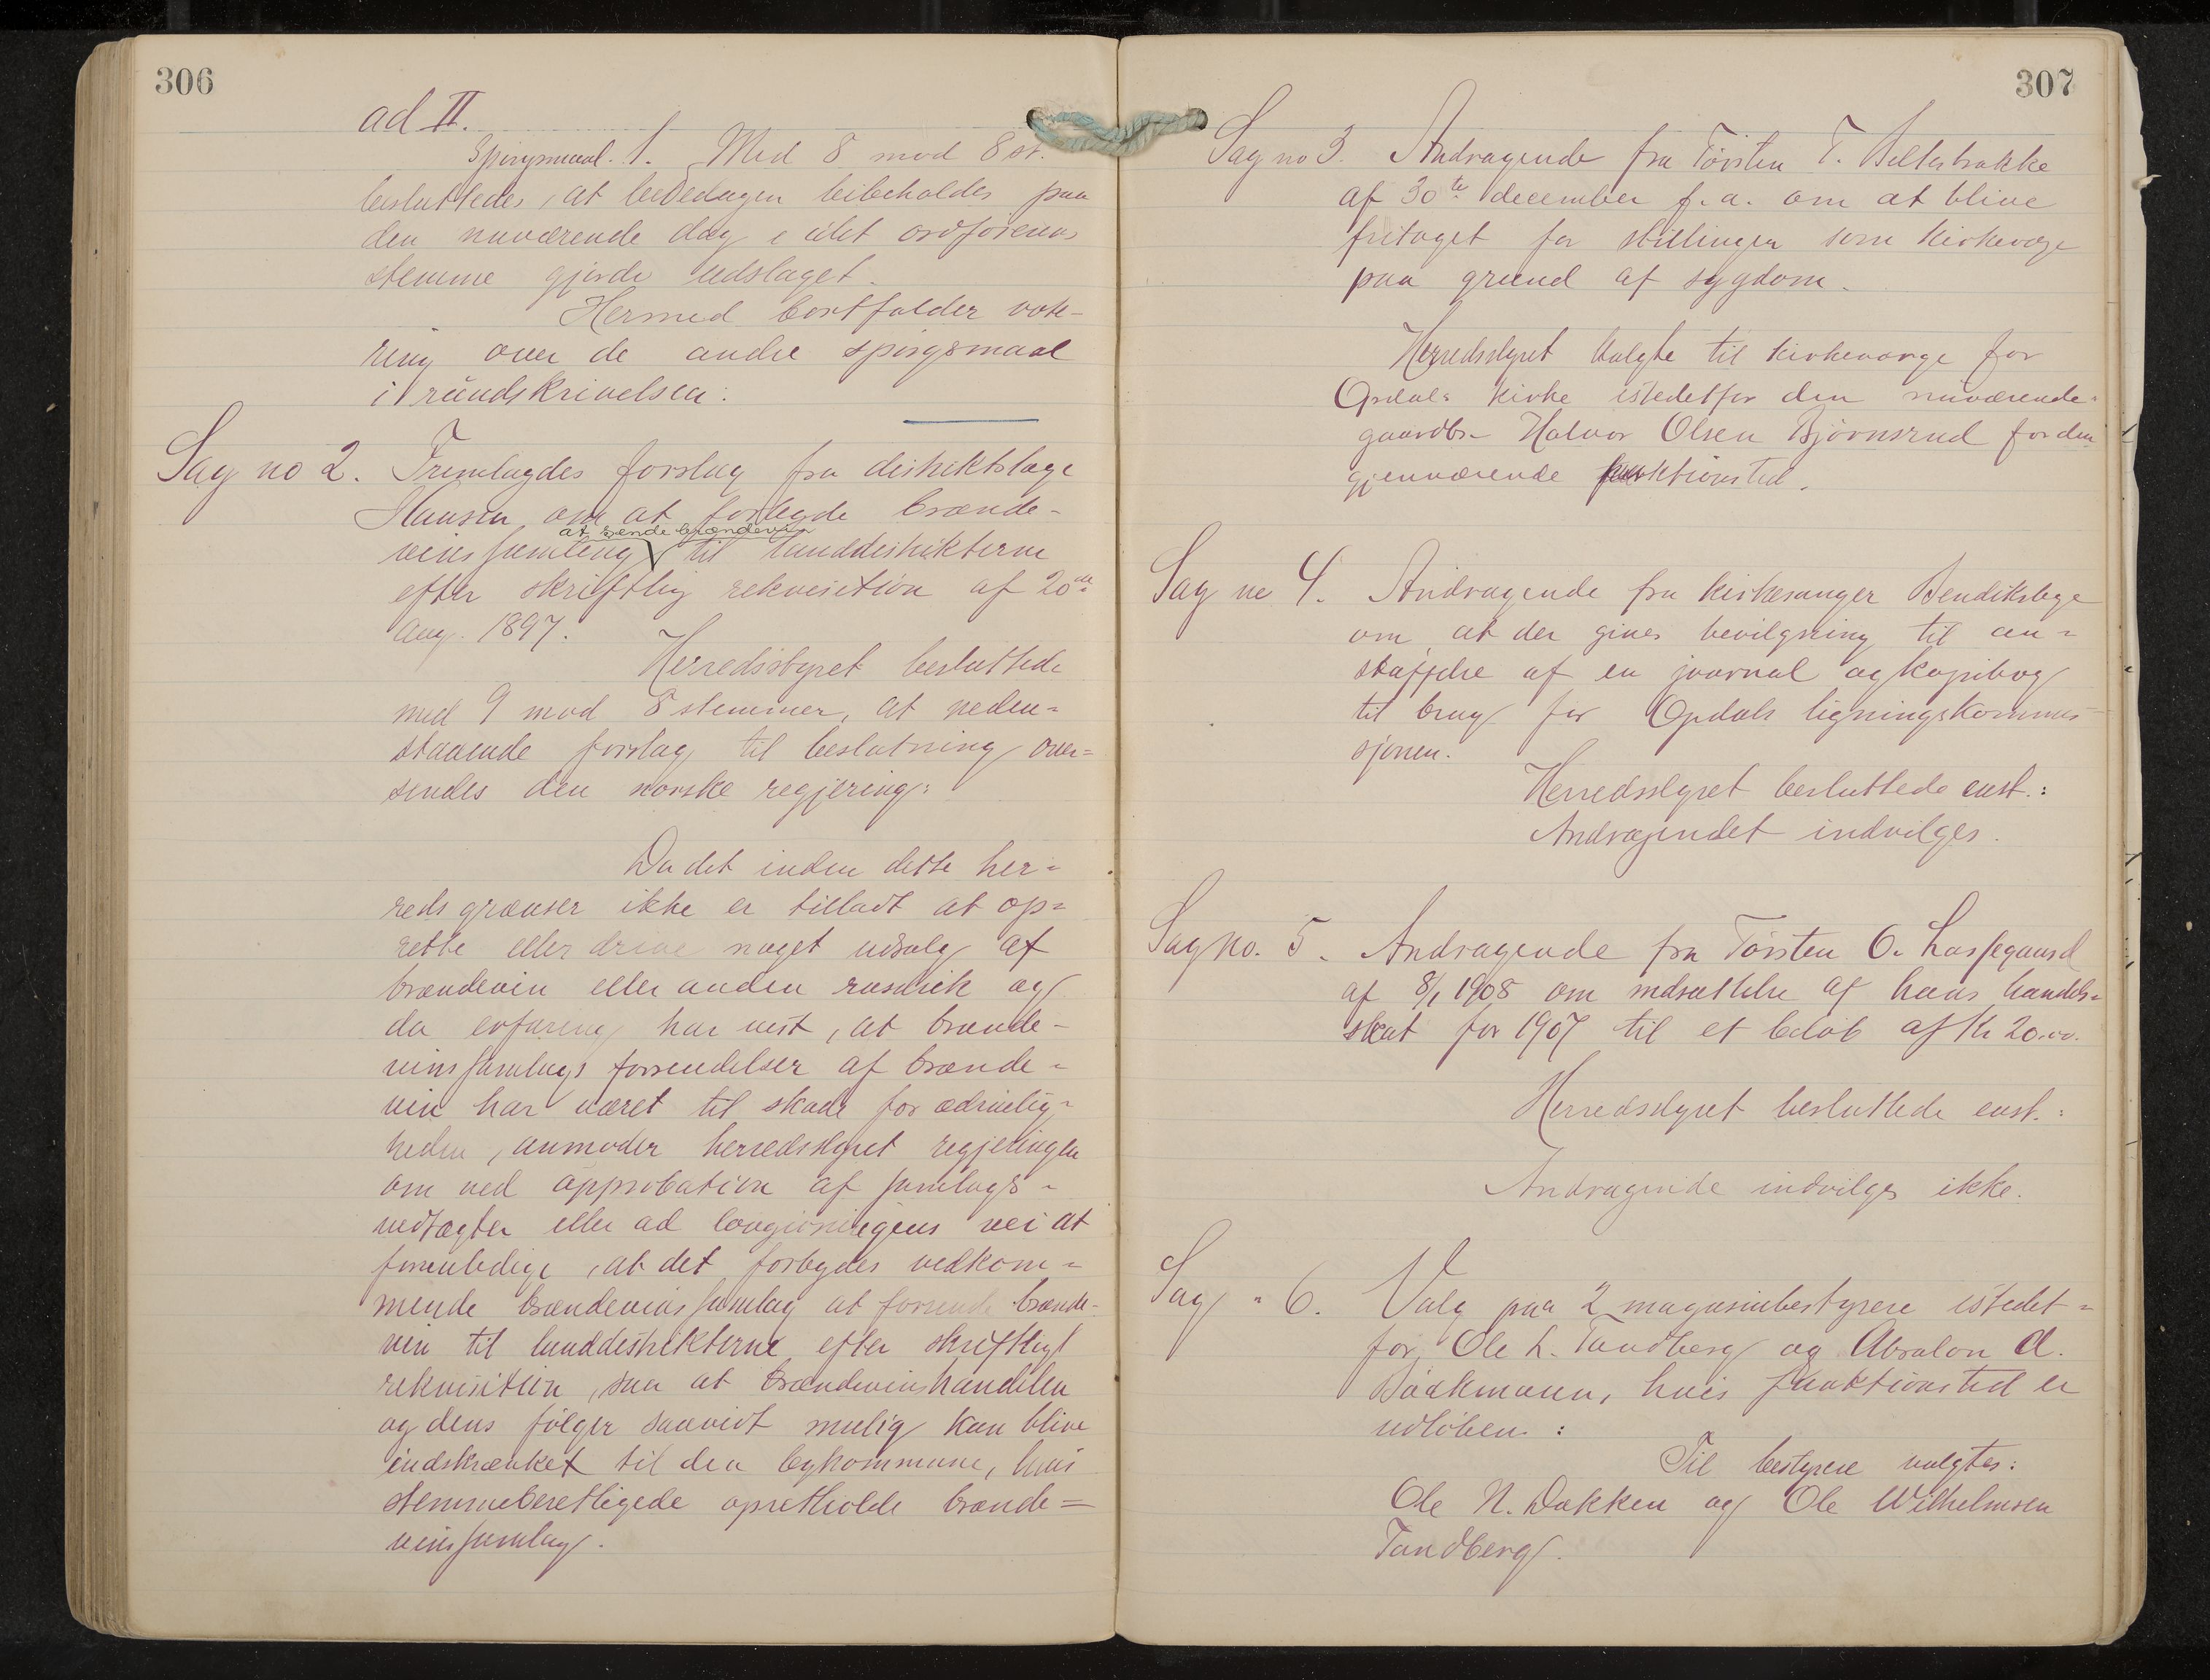 306
ad II.
Spörgsmaal. 1. Med 8 mod 8 st.
besluttedes, at bededagen beibeholdes paa
den nuværende dag, idet ordförerens
stemme gjorde udslaget.
Hermed bortfalder vote-
ring over de andre spörgsmaal
i rundskrivelsen:
Sag no 2. Fremlagdes forslag fra distriktslæge
Hansen om at forbyde brænde-
at sende brændevin
vinssamlag til landdistrikterne
efter skriftlig rekvisition af 20de
Aug. 1897.
Herredsstyret besluttede
med 9 mod 8 stemmer, at neden=
staaende forslag til beslutning over=
sendes den norske regjering:
Da det inden dette her=
reds grænser ikke er tilladt at op=
rette eller drive noget udsalg af
brændevin eller anden rusdrik og
da erfaring har vist, at brænde-
vinssamlags forsendelser af brænde-
vin har været til skade for ædruelig-
heden, anmoder herredsstyret regjeringen
om ved approbation af samlags-
vedtægter eller ad lovgivningens vei at
foranledige, at det forbydes vedkom=
mende brændevinssamlag at forsende brænde-
vin til landdistrikterne efter skriftligt
rekvisition, saa at brændevinshandelen
og dens fölger saavidt mulig kan blive
indskrænket til den bykommune, hvis
stemmeberettigede opretholdt brænde=
vinssamlag.
307
Sag no 3. Andragende fra Törsten T.
af 30te december f.a. om at blive
fritaget for stillingen som kirkeværge
paa grund af sygdom.
Herredsstyret valgte til kirkeværge for
Opdals kirke istedetfor den nuværende
gaardbr. Halvor Olsen Björnsrud for den
gjenværende funktionstid.
Sag no 4. Andragende fra kirkesanger Bendikslege
om at der gives bevilgning til an=
skaffelse af en journal og kopibog
til brug for Opdals ligningskommis
sjonen.
Herredsstyret besluttede enst.:
Andragendet indvilges.
Sag no. 5. Andragende fra Törsten O. Lassegaard
af 8/1 1908 om nedsættelse af hans handels=
skat for 1907 til et belöb af Kr 20.00.
Herredsstyret besluttede enst.:
Andragende indvilges ikke.
Sag " 6. Valg paa 2 magasinbestyrere istedet=
for Ole L. Tandberg og Absalon A.
Baakmann, hvis funktionstid er
udlöben:
Til bestyrere valgtes:
Ole N. Dokken og Ole Wilhelmsen
Tandberg.